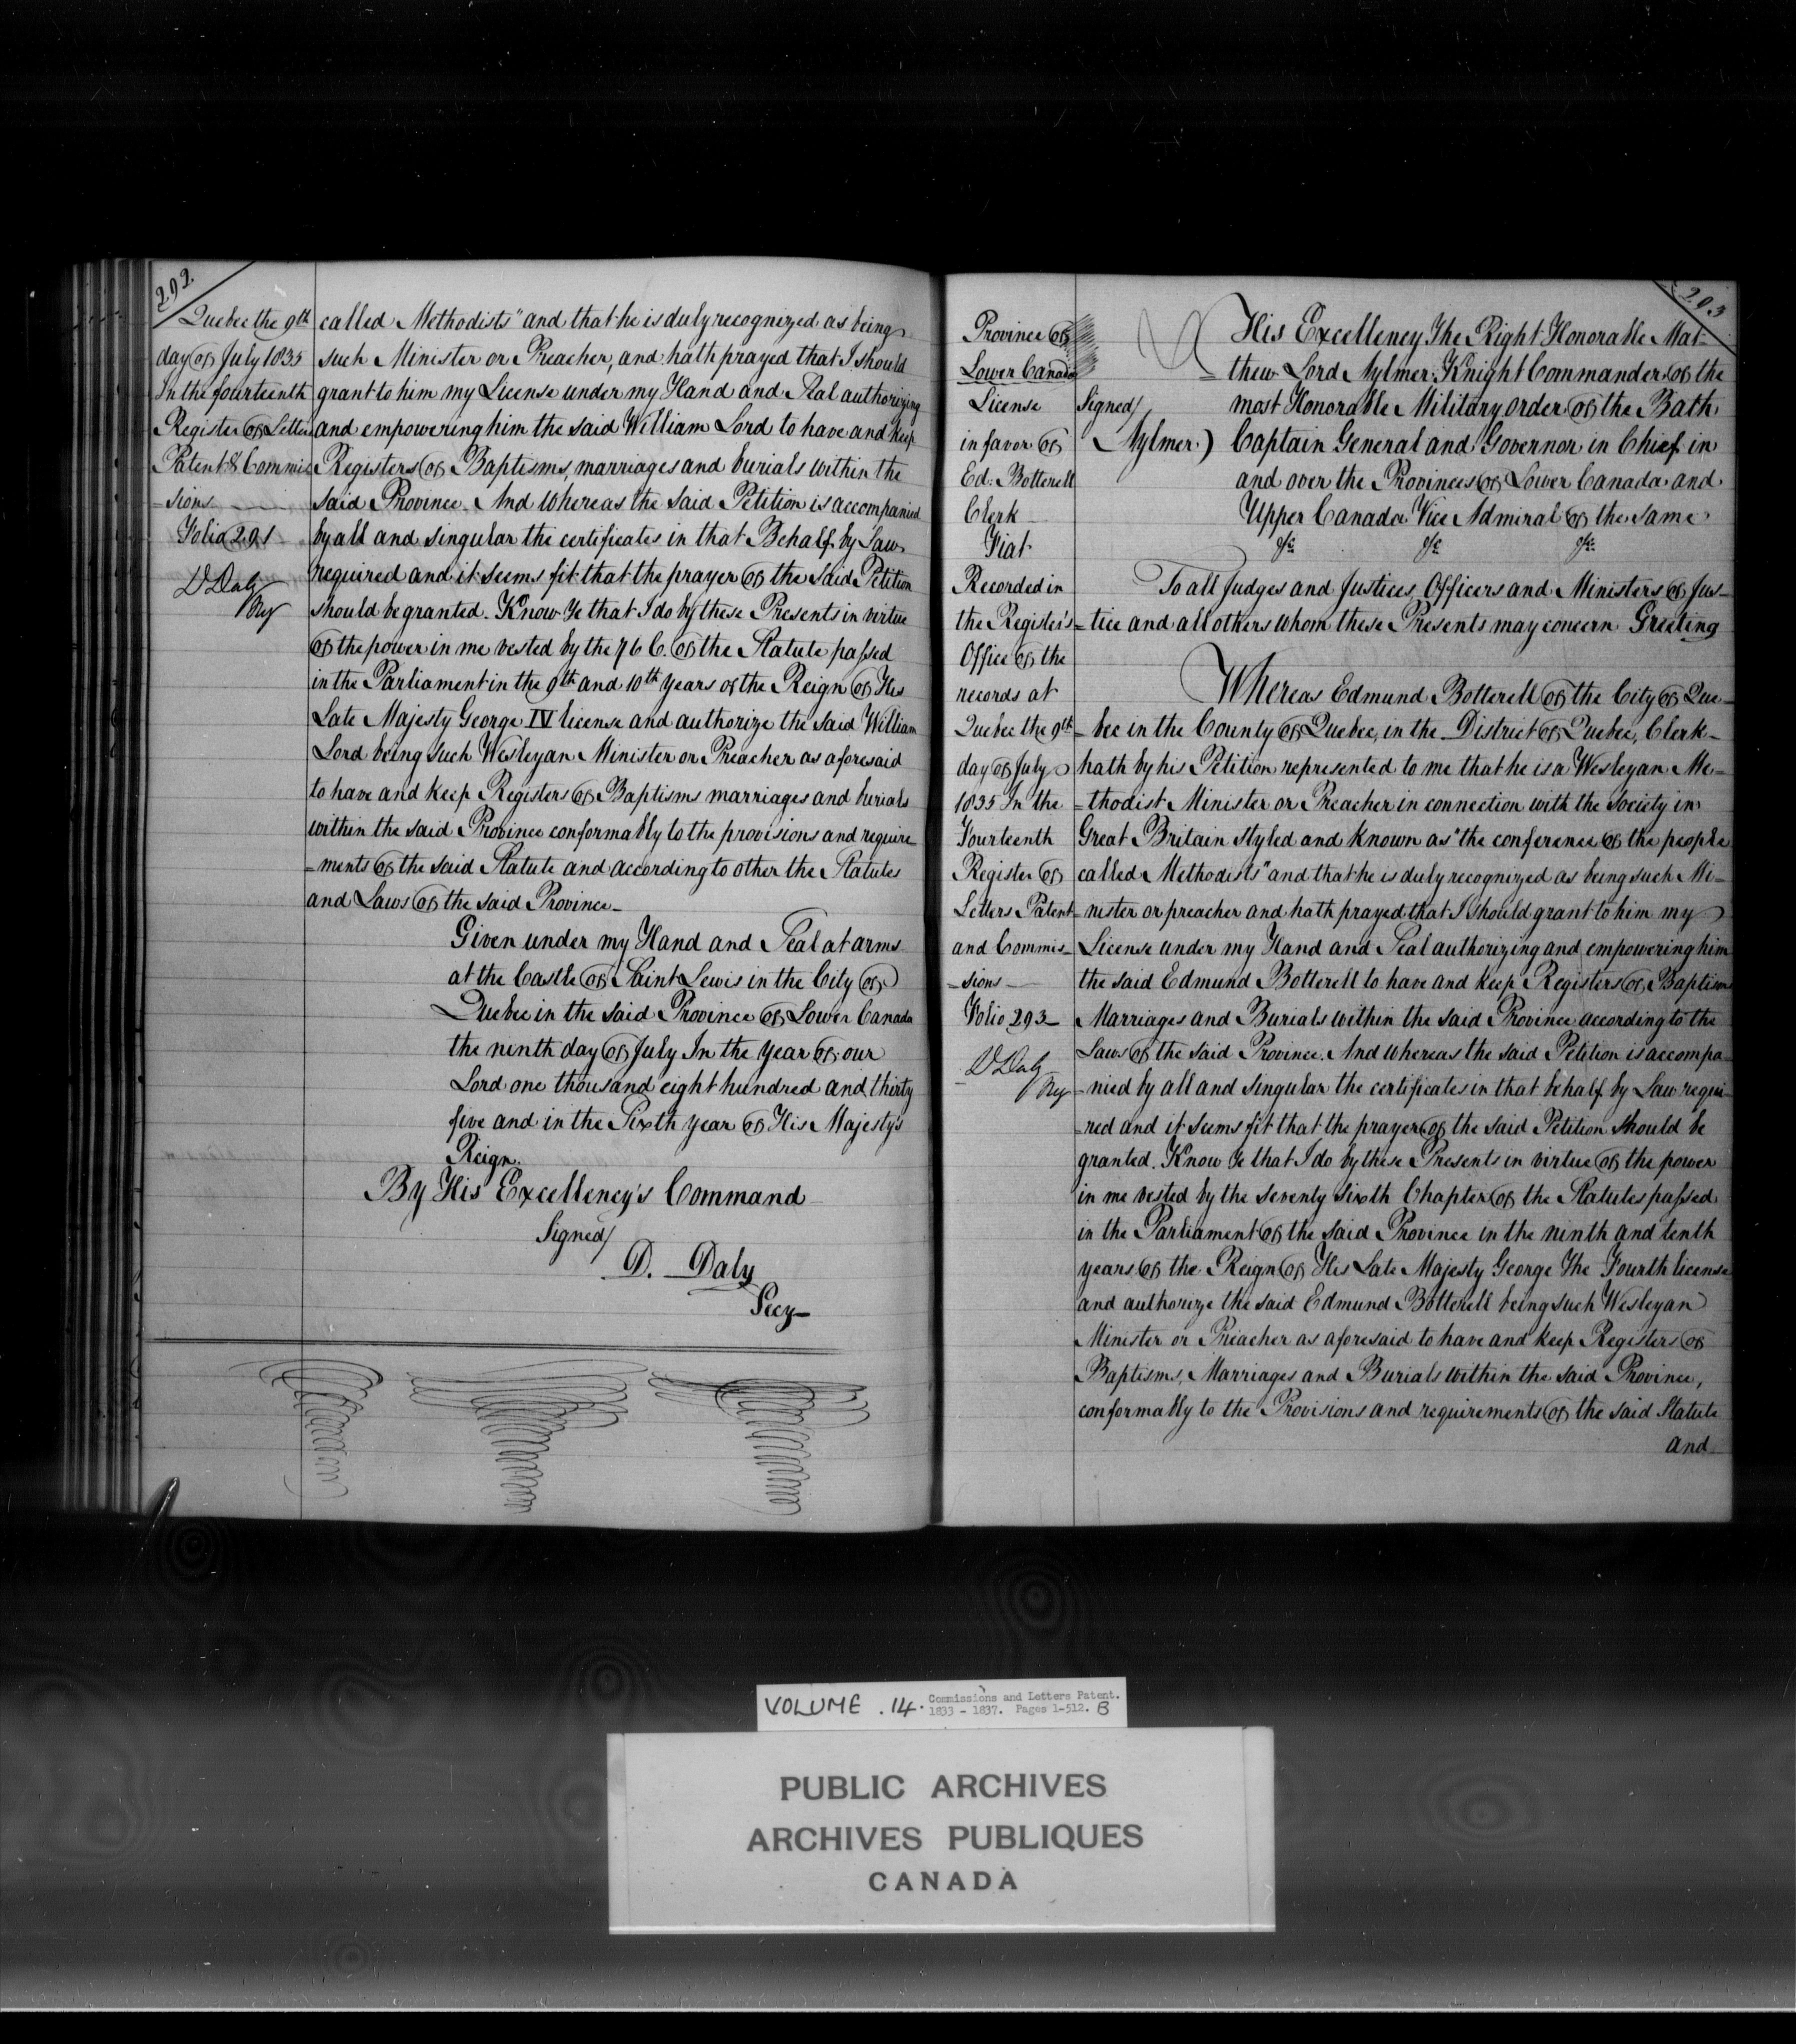 292.
Quebec the 9th
day of July 1835
In the fourteenth
Register of Letters
Patent & Commis
=sions
Folio 291
D Daly
Reg
called Methodists" and that he is duly recognized as being
such Minister or Preacher, and hath prayed that I should
grant to him my License under my Hand and Seal authorizing
and empowering him the said William Lord to have and keep
Registers of Baptisms, marriages and burials within the
said Province. And whereas the said Petition is accompanied
by all and singular the certificates in that Behalf by Law
required and it seems fit that the prayer of the said Petition
should be granted. Know Ye that I do by these Presents in virtue
of the power in me vested by the 76 C. of the Statute passed
in the Parliament in the 9th and 10th years of the Reign of His
Late Majesty George IV license and authorize the said William
Lord being such Wesleyan Minister or Preacher as aforesaid
to have and keep Registers of Baptisms marriages and burials
within the said Province conformably to the provisions and require=
=ments of the said Statute and according to other the Statutes
and Laws of the said Province_
Given under my Hand and Seal at arms
at the Castle of Saint Lewis in the City of
Quebec in the said Province of Lower Canada
the ninth day of July In the Year of our
Lord one thousand eight hundred and thirty
five and in the Sixth year of His Majesty's
Reign.
By His Excellency's Command
Signed/
D. Daly
Secy
293
Province of
Lower Canada
License
in favor of
Ed: Botterell
Clerk
Fiat
Recorded in
the Register's
Office of the
records at
Quebec the 9th
day of July
1835 In the
Fourteenth
Register of
Letters Patent
and Commis_
=sions
Folio 293_
D Daly
Reg
Signed/
Aylmer)
His Excellency The Right Honorable Mat=
=thew Lord Aylmer Knight Commander of the
most Honorable Military order of the Bath
Captain General and Governor in Chief in
and over the Provinces of Lower Canada and
Upper Canada Vice Admiral of the same
&c &c &c
To all Judges and Justices, Officers and Ministers of Jus=
=tice and all others whom these Presents may concern Greeting
Whereas Edmund Botterell of the City of Que=
=bec in the County of Quebec, in the District of Quebec, Clerk_
hath by his Petition represented to me that he is a Wesleyan Me=
=thodist Minister or Preacher in connection with the Society in
Great Britain styled and known as "the conference of the people
called Methodists" and that he is duly recognized as being such Mi=
=nister or preacher and hath prayed that I should grant to him my
License under my Hand and Seal authorizing and empowering him
the said Edmund Botterell to have and keep Registers of Baptisms
Marriages and Burials within the said Province according to the
Laws of the said Province. And whereas the said Petition is accompa=
=nied by all and singular the certificates in that behalf by Law requi=
=red and it seems fit that the prayer of the said Petition should be
granted. Know Ye that I do by these Presents in virtue of the power
in me vested by the seventy sixth Chapter of the Statutes passed
in the Parliament of the said Province in the ninth and tenth
years of the Reign of His Late Majesty George The Fourth license
and authorize the said Edmund Botterell being such Wesleyan
Minister or Preacher as aforesaid to have and keep Registers of
Baptisms, Marriages and Burials within the said Province,
conformably to the Provisions and requirements of the said Statute
and
VOLUME .14. Commissions and Letters Patent.
1833 - 1837. Pages 1-512. B
PUBLIC ARCHIVES
ARCHIVES PUBLIQUES
CANADA